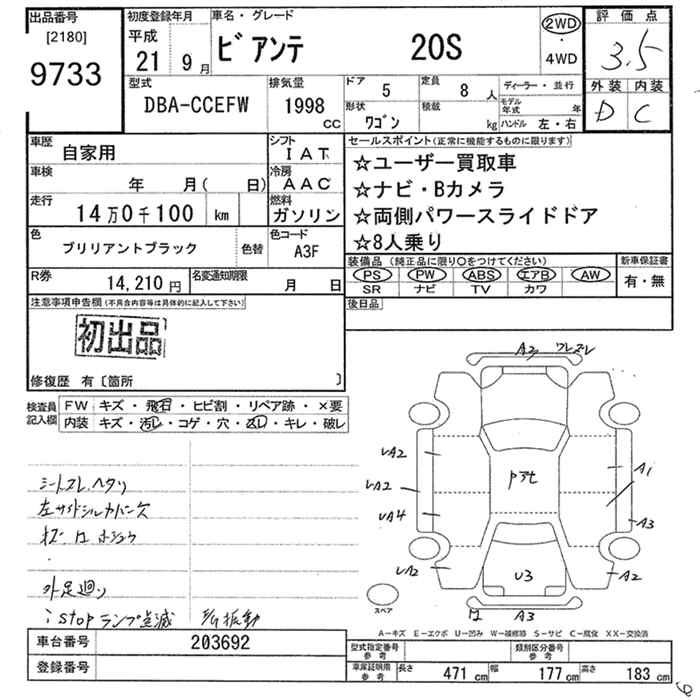 出品番号 [2180] 9733
初度登録年月 平成 21年 9月
車名・グレード ビアンテ 20S
2WD・4WD
評価点 3.5
外装 D 内装 C
型式 DBA-CCEFW
排気量 1998 cc
ドア 5
定員 8 人
形状 ワゴン
積載 kg
ディーラー・並行
モデル年式 年
ハンドル 左・右
車歴 自家用
シフト IAT
車検 年 月( 日)
冷房 AAC
走行 14万0千100 km
燃料 ガソリン
色 ブリリアントブラック 色替
色コード A3F
R券 14,210 円
名変通知期限 月 日
セールスポイント(正常に機能するものに限ります)
☆ユーザー買取車
☆ナビ・Bカメラ
☆両側パワースライドドア
☆8人乗り
装備品 (純正品に限り○をつけてください)
PS PW ABS エアB AW
SR ナビ TV カワ
新車保証書 有・無
後日品
注意事項申告欄 (不具合内容等は具体的に記入して下さい)
初出品
修復歴 有〔箇所 〕
検査員記入欄
FW キズ・飛石・ヒビ割・リペア跡・×要
内装 キズ・汚レ・コゲ・穴・スレ・キレ・破レ
シートスレ、ヘタリ
左サイドシルカバー欠
外足廻り
i stop ランプ点滅
A2 ワレ ズレ
UA2
A1
UA2
UA4
A3
UA2
A2
U3
A3
スペア
A－キズ E－エクボ U－凹み W－補修跡 S－サビ C－腐食 XX－交換済
車台番号 203692
登録番号
型式指定番号 参考
類別区分番号 参考
車庫証明用 参考
長さ 471 cm 幅 177 cm 高さ 183 cm